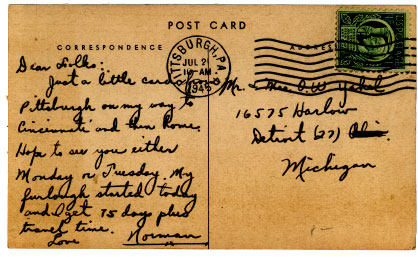 POST CARD
CORRESPONDENCE
ADDRESS
PITTSBURGH, PA.
JUL 21
10-AM
1945
Dear Folks:
Just a little card from
Pittsburgh on my way to
Cincinnati and then Rome.
Hope to see you either
Monday or Tuesday. My
furlough started today
and I get 15 days plus
travel time.
Love Norman
Mr. & Mrs. O. W.
16575 Harlow
Detroit (27)
Michigan